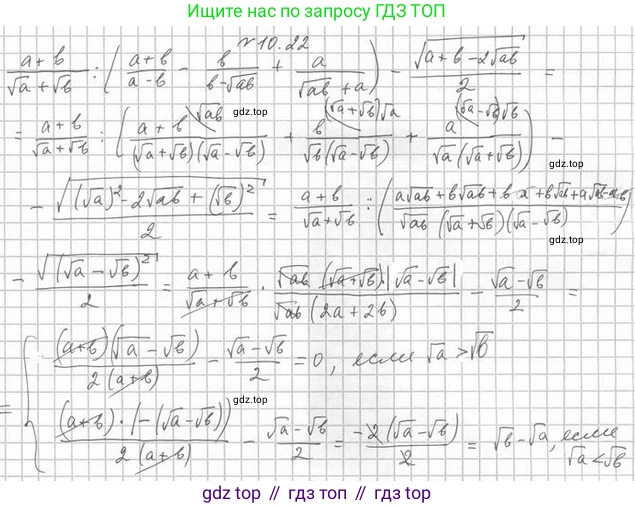 Ищите нас по запросу ГДЗ ТОП
№10.22
(a+b)/(√a+√b) : ((a+b)/(a-b) - b/(b-√ab) + a/(√ab+a)) - √(a+b-2√ab)/2 =
gdz.top
= (a+b)/(√a+√b) : ((a+b)\√ab/((√a+√b)(√a-√b)) + b\(√a+√b)√a/(√b(√a-√b)) + a\(√a-√b)√b/(√a(√a+√b))) -
- √((√a)²-2√ab+(√b)²)/2 = (a+b)/(√a+√b) : ((a√ab+b√ab+b·a+b√ab+a√ab-ab)/(√ab(√a+√b)(√a-√b)))
gdz.top
- √((√a-√b)²)/2 = (a+b)/(√a+√b) · √ab(√a+√b)·|√a-√b|/(√ab(2a+2b)) - (√a-√b)/2 =
= { (a+b)(√a-√b)/(2(a+b)) - (√a-√b)/2 = 0, если √a>√b
gdz.top
(a+b)·(-(√a-√b))/(2(a+b)) - (√a-√b)/2 = -2(√a-√b)/2 = √b-√a, если √a<√b
gdz.top // гдз.top // гдз.топ